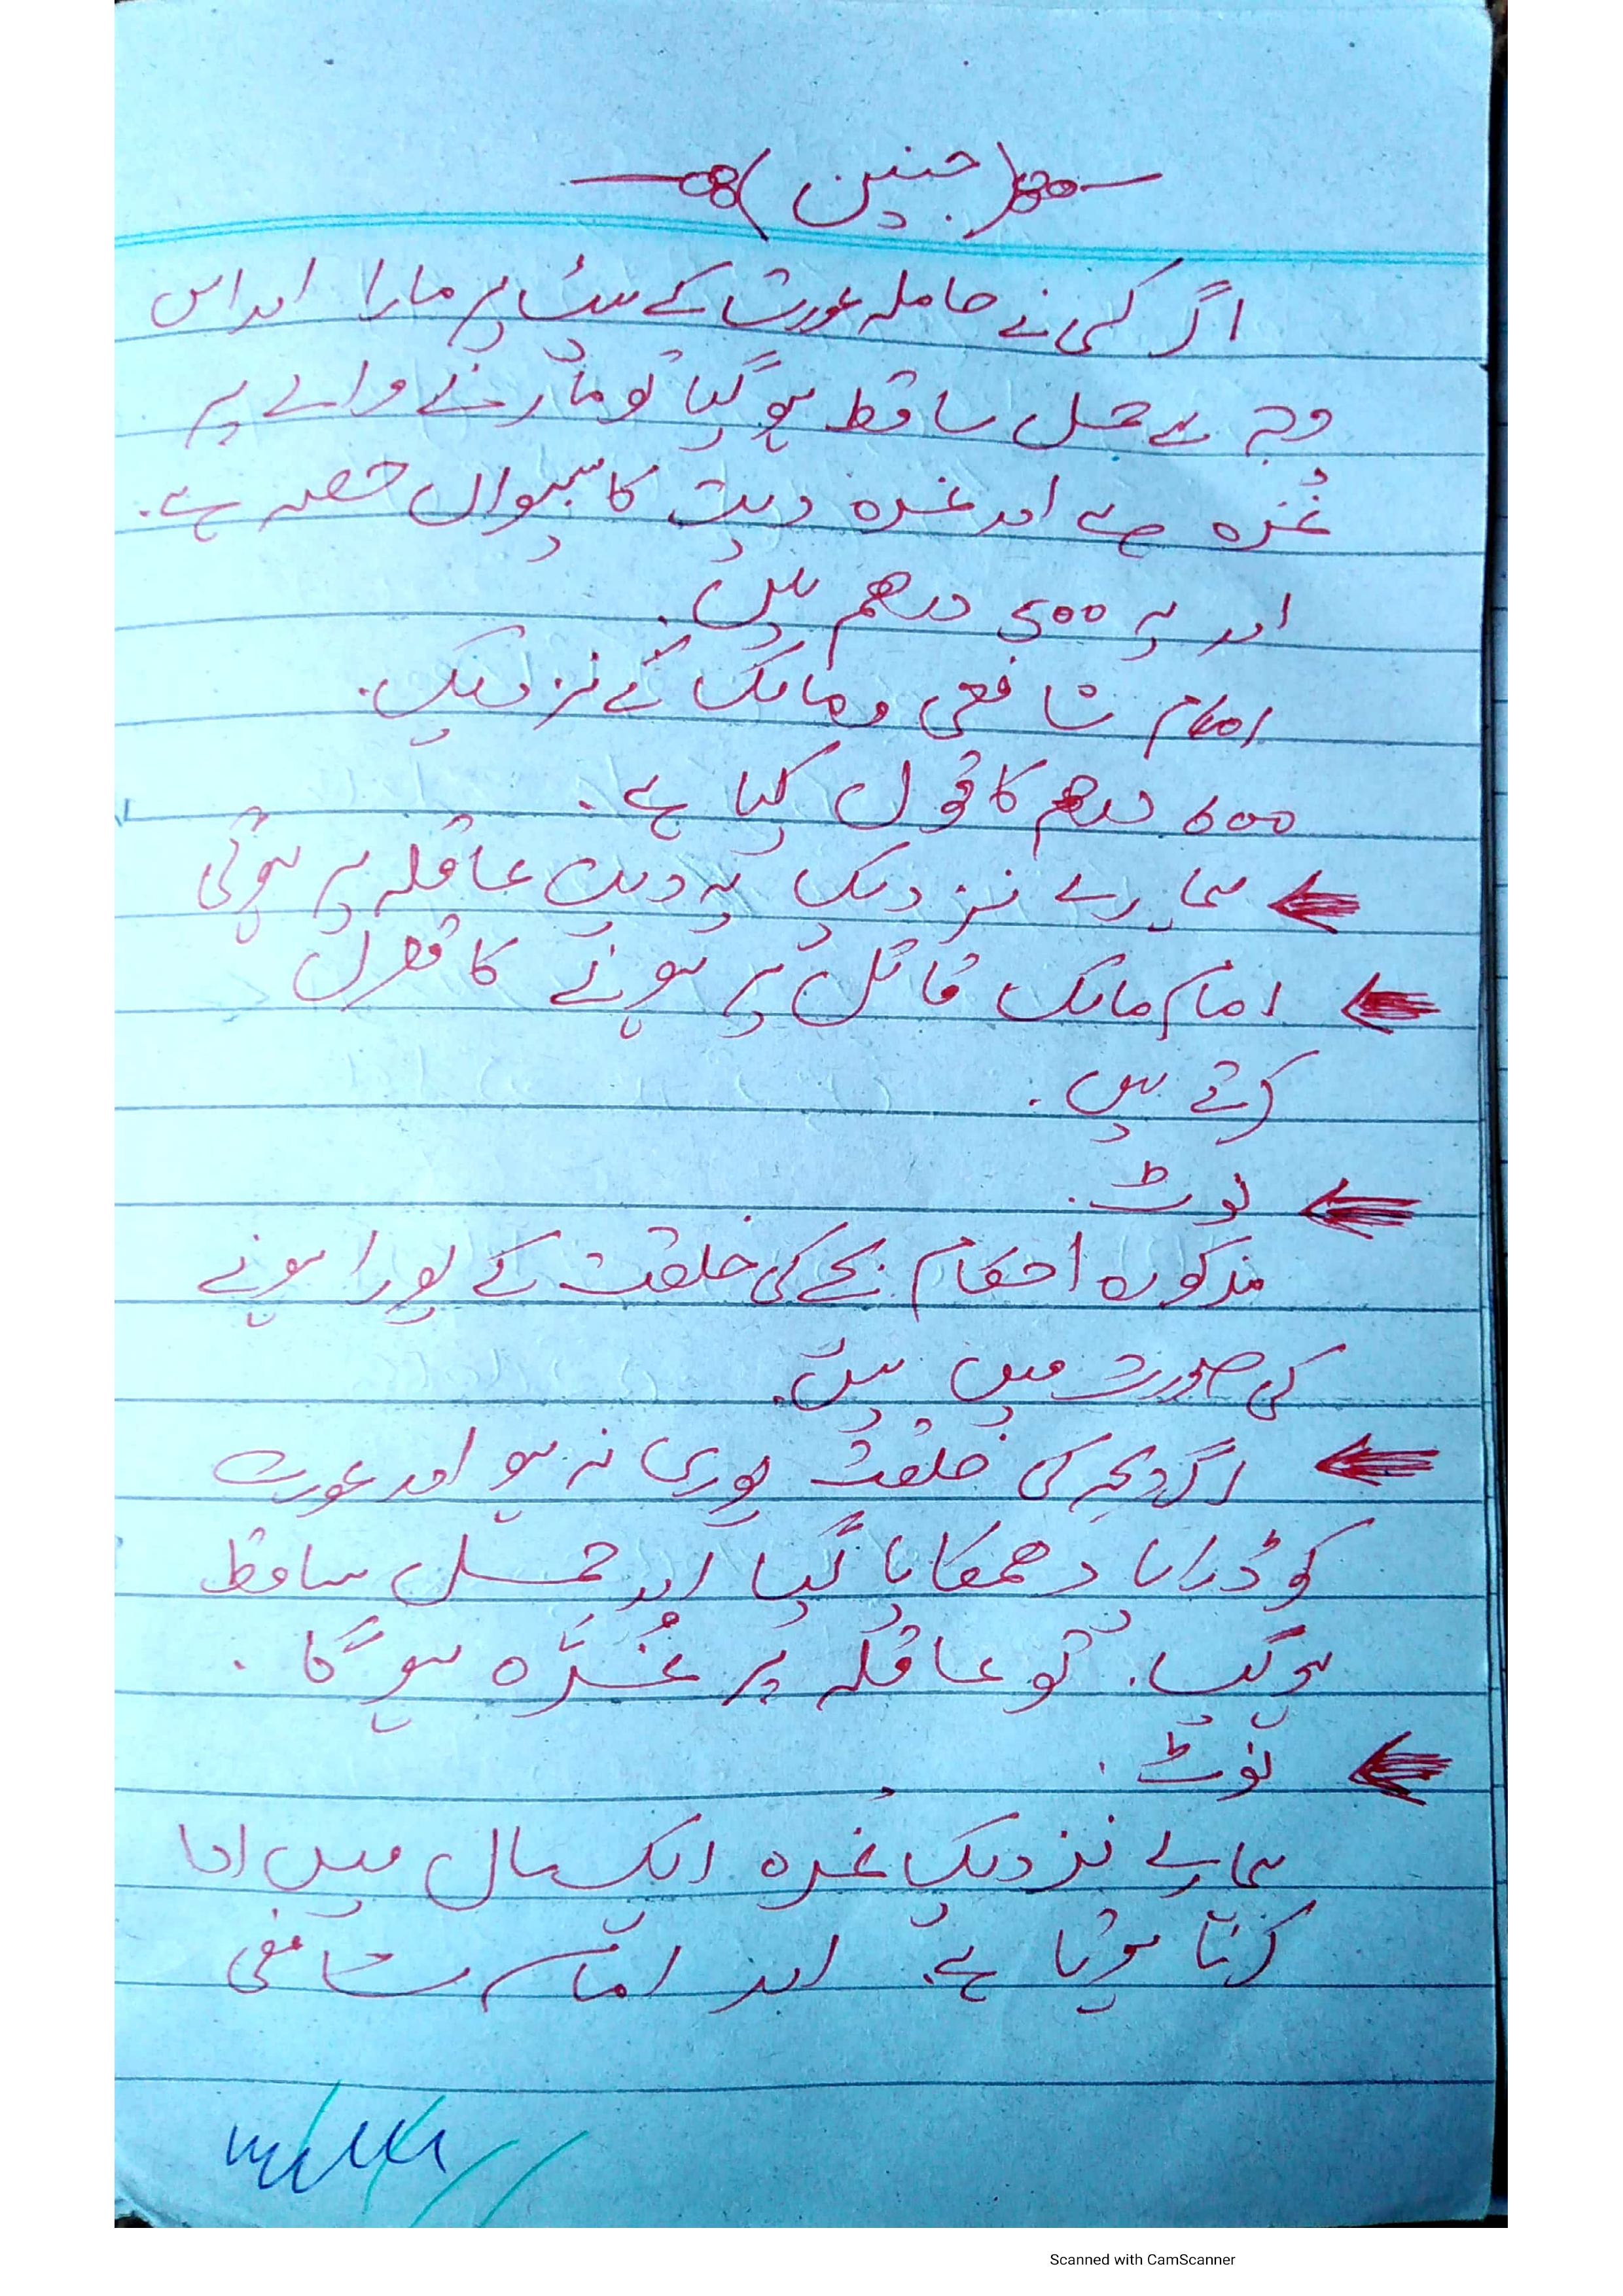 (جنین)
اگر کسی نے حاملہ عورت کے پیٹ پر مارا اور اس
وجہ سے حمل ساقط ہو گیا تو مارنے والے پر
غُرہ ہے اور غرہ دیت کا بیسواں حصہ ہے۔
اور یہ 500 درھم ہیں۔
امام شافعی و مالک کے نزدیک۔
600 درھم کا قول کیا ہے۔
ہمارے نزدیک یہ دیت عاقلہ پر ہوگی
امام مالک قاتل پر ہونے کا قول
کرتے ہیں۔
نوٹ۔
مذکورہ احکام بچے کی خلقت کے پورا ہونے
کی صورت میں ہیں۔
اگر بچہ کی خلقت پوری نہ ہو اور عورت
کو ڈرایا دھمکایا گیا اور حمل ساقط
ہو گیا۔ تو عاقلہ پر غُرّہ ہو گا۔
نوٹ۔
ہمارے نزدیک غُرہ ایک سال میں ادا
کرنا ہوتا ہے۔ اور امام شافعی
Scanned with CamScanner